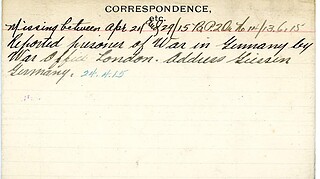 CORRESPONDENCE,
etc.
Missing between Apr 21 & 29/15 13.6.15
Reported prisoner of War in Germany by
War Office London. Address Giessen
Germany. 24.4.15